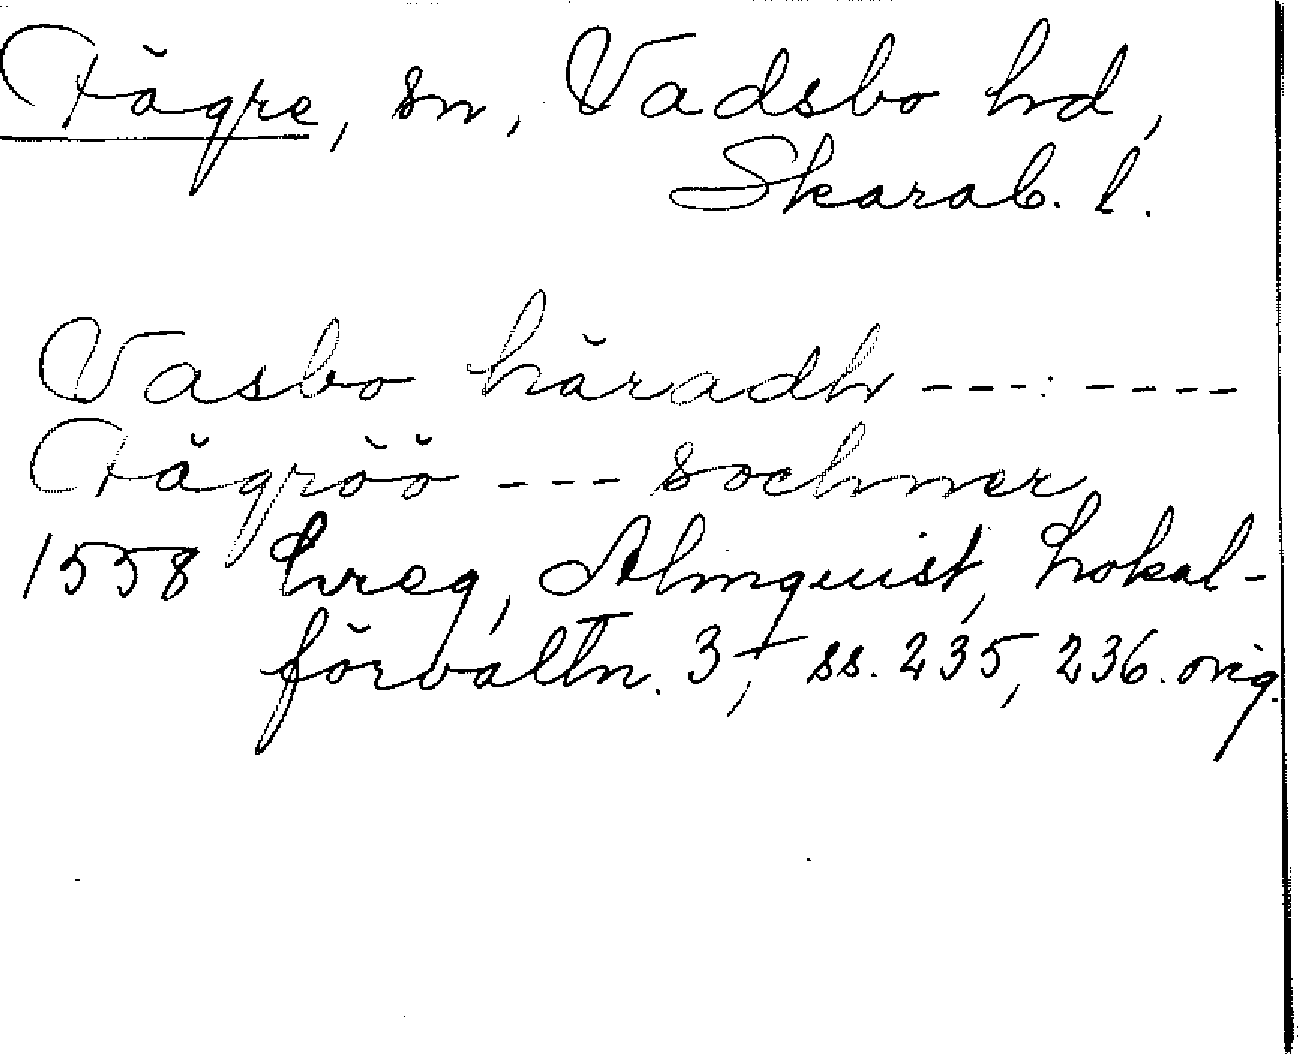 Fägre, sn, Vadsbo hd,
Skarab. l.
Vasbo häradh ---:----
Fägröö --- sochner
1558 Lreg, Almquist, Lokal-
förvaltn. 3, ss. 235, 236. orig.